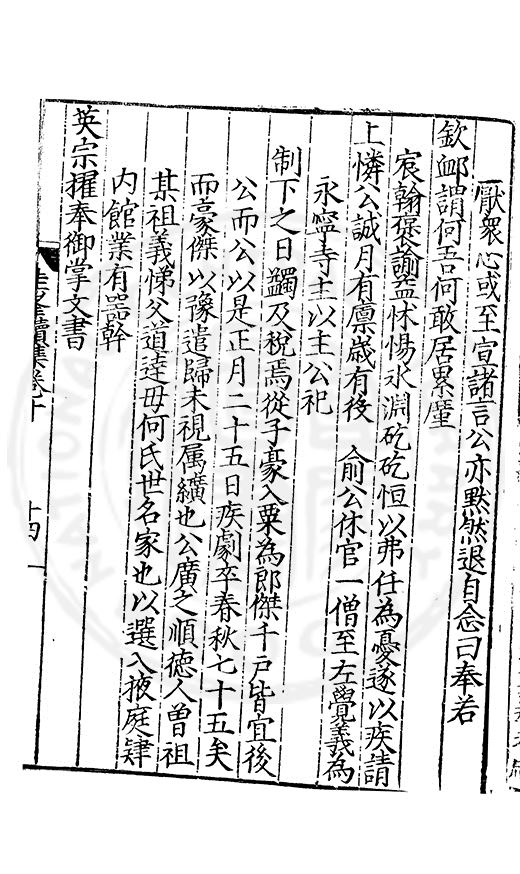 厭衆心或至宣諸言公亦黙然退自念曰奉若
欽䘏謂何吾何敢居累廑
宸翰褒諭益怵惕水淵矻矻恒以弗任為憂遂以疾請
上憐公誠月有廪歳有後　俞公休官一僧至左覺義為
永寧寺主以主公祀
制下之日蠲及税焉從子豪入粟為郎傑千戸皆宜後
公而公以是正月二十五日疾劇卒春秋七十五矣
而豪傑以豫遣歸未視属纊也公廣之順徳人曽祖
某祖義悌父道逹毋何氏世名家也以選入掖庭肄
内館業有噐幹
英宗擢奉御掌文書
續集卷十
十四